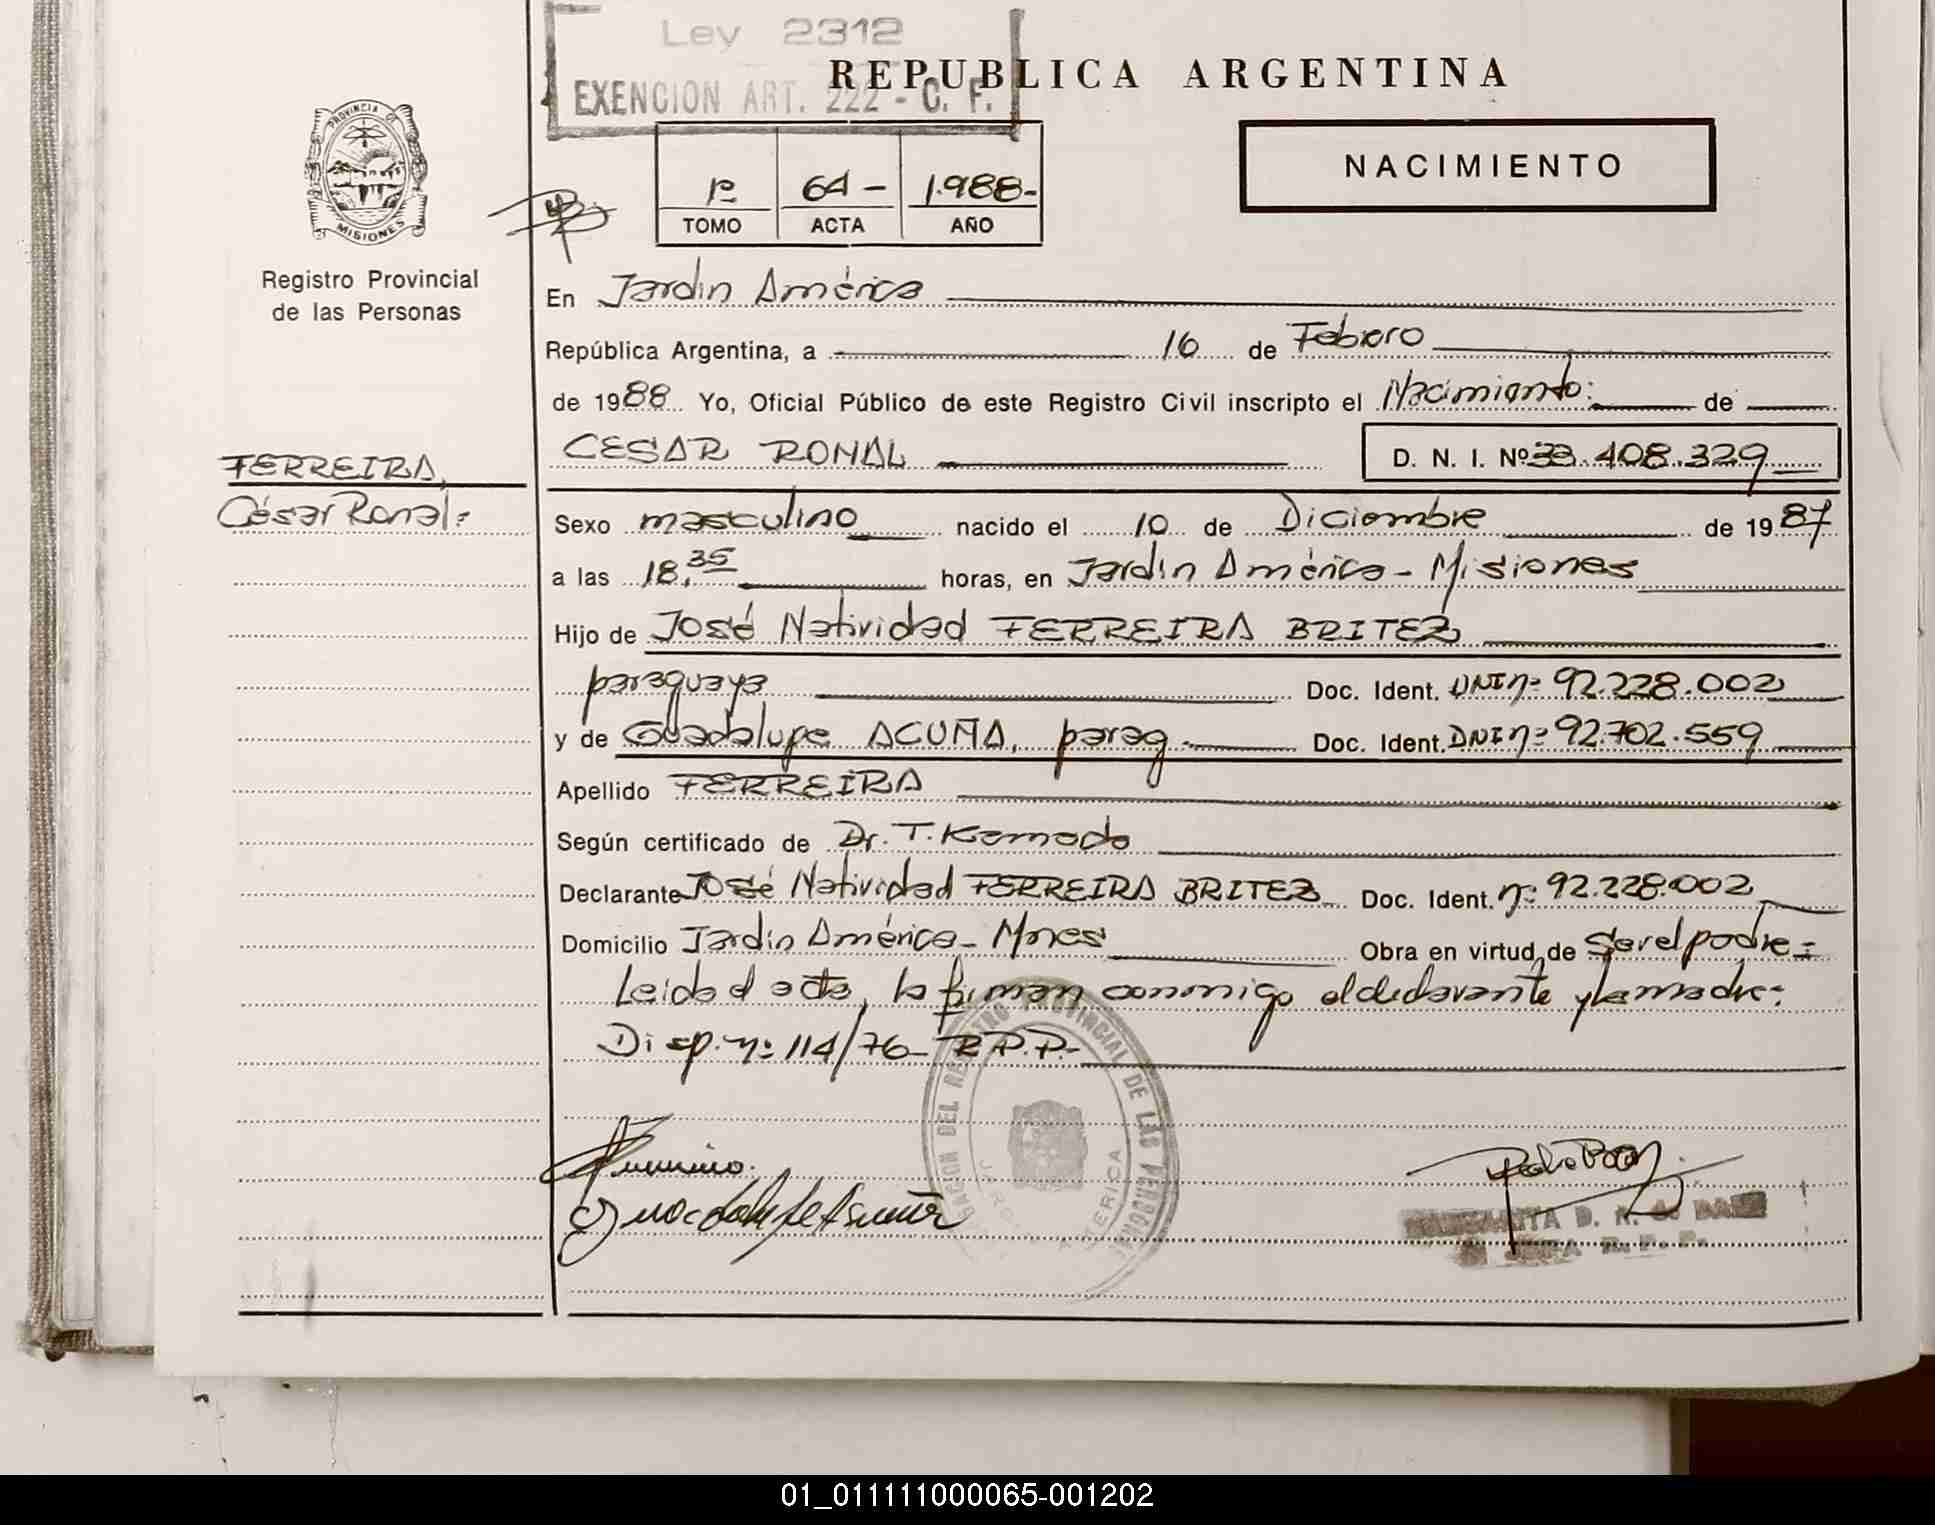 Ley 2312
EXENCION ART. 222 - C. F.
REPUBLICA ARGENTINA
PROVINCIA DE
MISIONES
Registro Provincial
de las Personas
1º 64 - 1.988-
TOMO ACTA AÑO
NACIMIENTO
En Jardin América
República Argentina, a 16 de Febrero
de 1988 Yo, Oficial Público de este Registro Civil inscripto el Nacimiento: de
CESAR RONAL D. N. I. Nº 33.408.329
FERREIRA,
César Ronal=
Sexo masculino nacido el 10 de Diciembre de 1987
a las 18,35 horas, en Jardin América - Misiones
Hijo de José Natividad FERREIRA BRITEZ
paraguaya Doc. Ident. DNI nº 92.228.002
y de Guadalupe ACUÑA, parag. Doc. Ident. DNI nº 92.702.559
Apellido FERREIRA
Según certificado de Dr. T. Kamada
Declarante José Natividad FERREIRA BRITEZ Doc. Ident. nº 92.228.002
Domicilio Jardin América - Mnes Obra en virtud de Ser el padre=
Leida el acta, la firman conmigo el declarante y la madre=
Disp. nº 114/76 - R.P.P.-
DEL REGISTRO PROVINCIAL DE LAS PERSONAS
JARDIN AMERICA
Guadalupe Acuña
R. P. P.
01_011111000065-001202